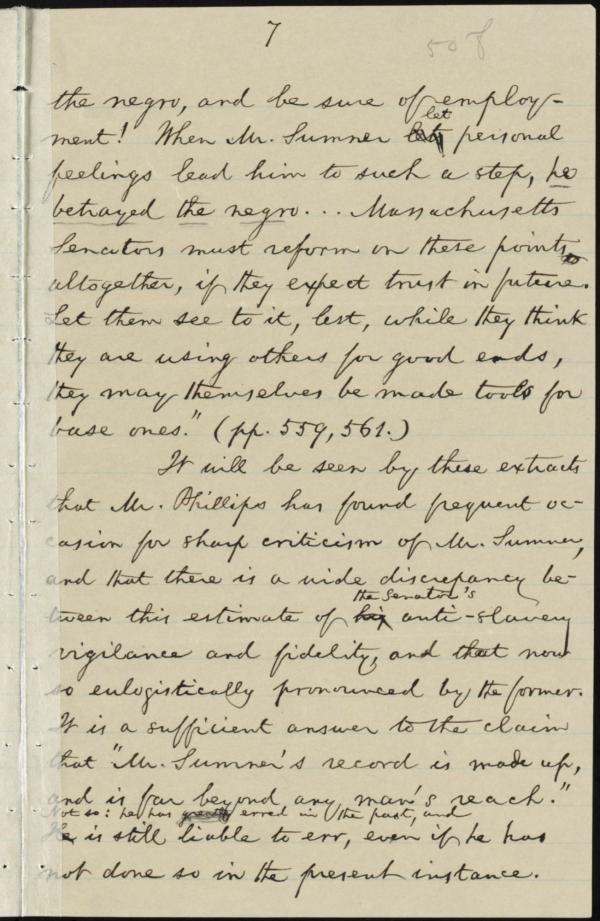 7
50 f
the negro, and be sure of employ-
ment! When Mr. Sumner let personal
feelings lead him to such a step, he
betrayed the negro... Massachusetts
Senators must reform on these points
altogether, if they expect trust in future.
Let them see to it, lest, while they think
they are using others for good ends,
they may themselves be made tools for
base ones." (pp. 559, 561.)
It will be seen by these extracts
that Mr. Phillips has found frequent oc-
casion for sharp criticism of Mr. Sumner,
and that there is a wide discrepancy be-
tween this estimate of the Senator's anti-slavery
vigilance and fidelity, and that now
so eulogistically pronounced by the former.
It is a sufficient answer to the claim
that "Mr. Sumner's record is made up,
and is far beyond any man's reach."
Not so: he has erred in the past, and
He is still liable to err, even if he has
not done so in the present instance.